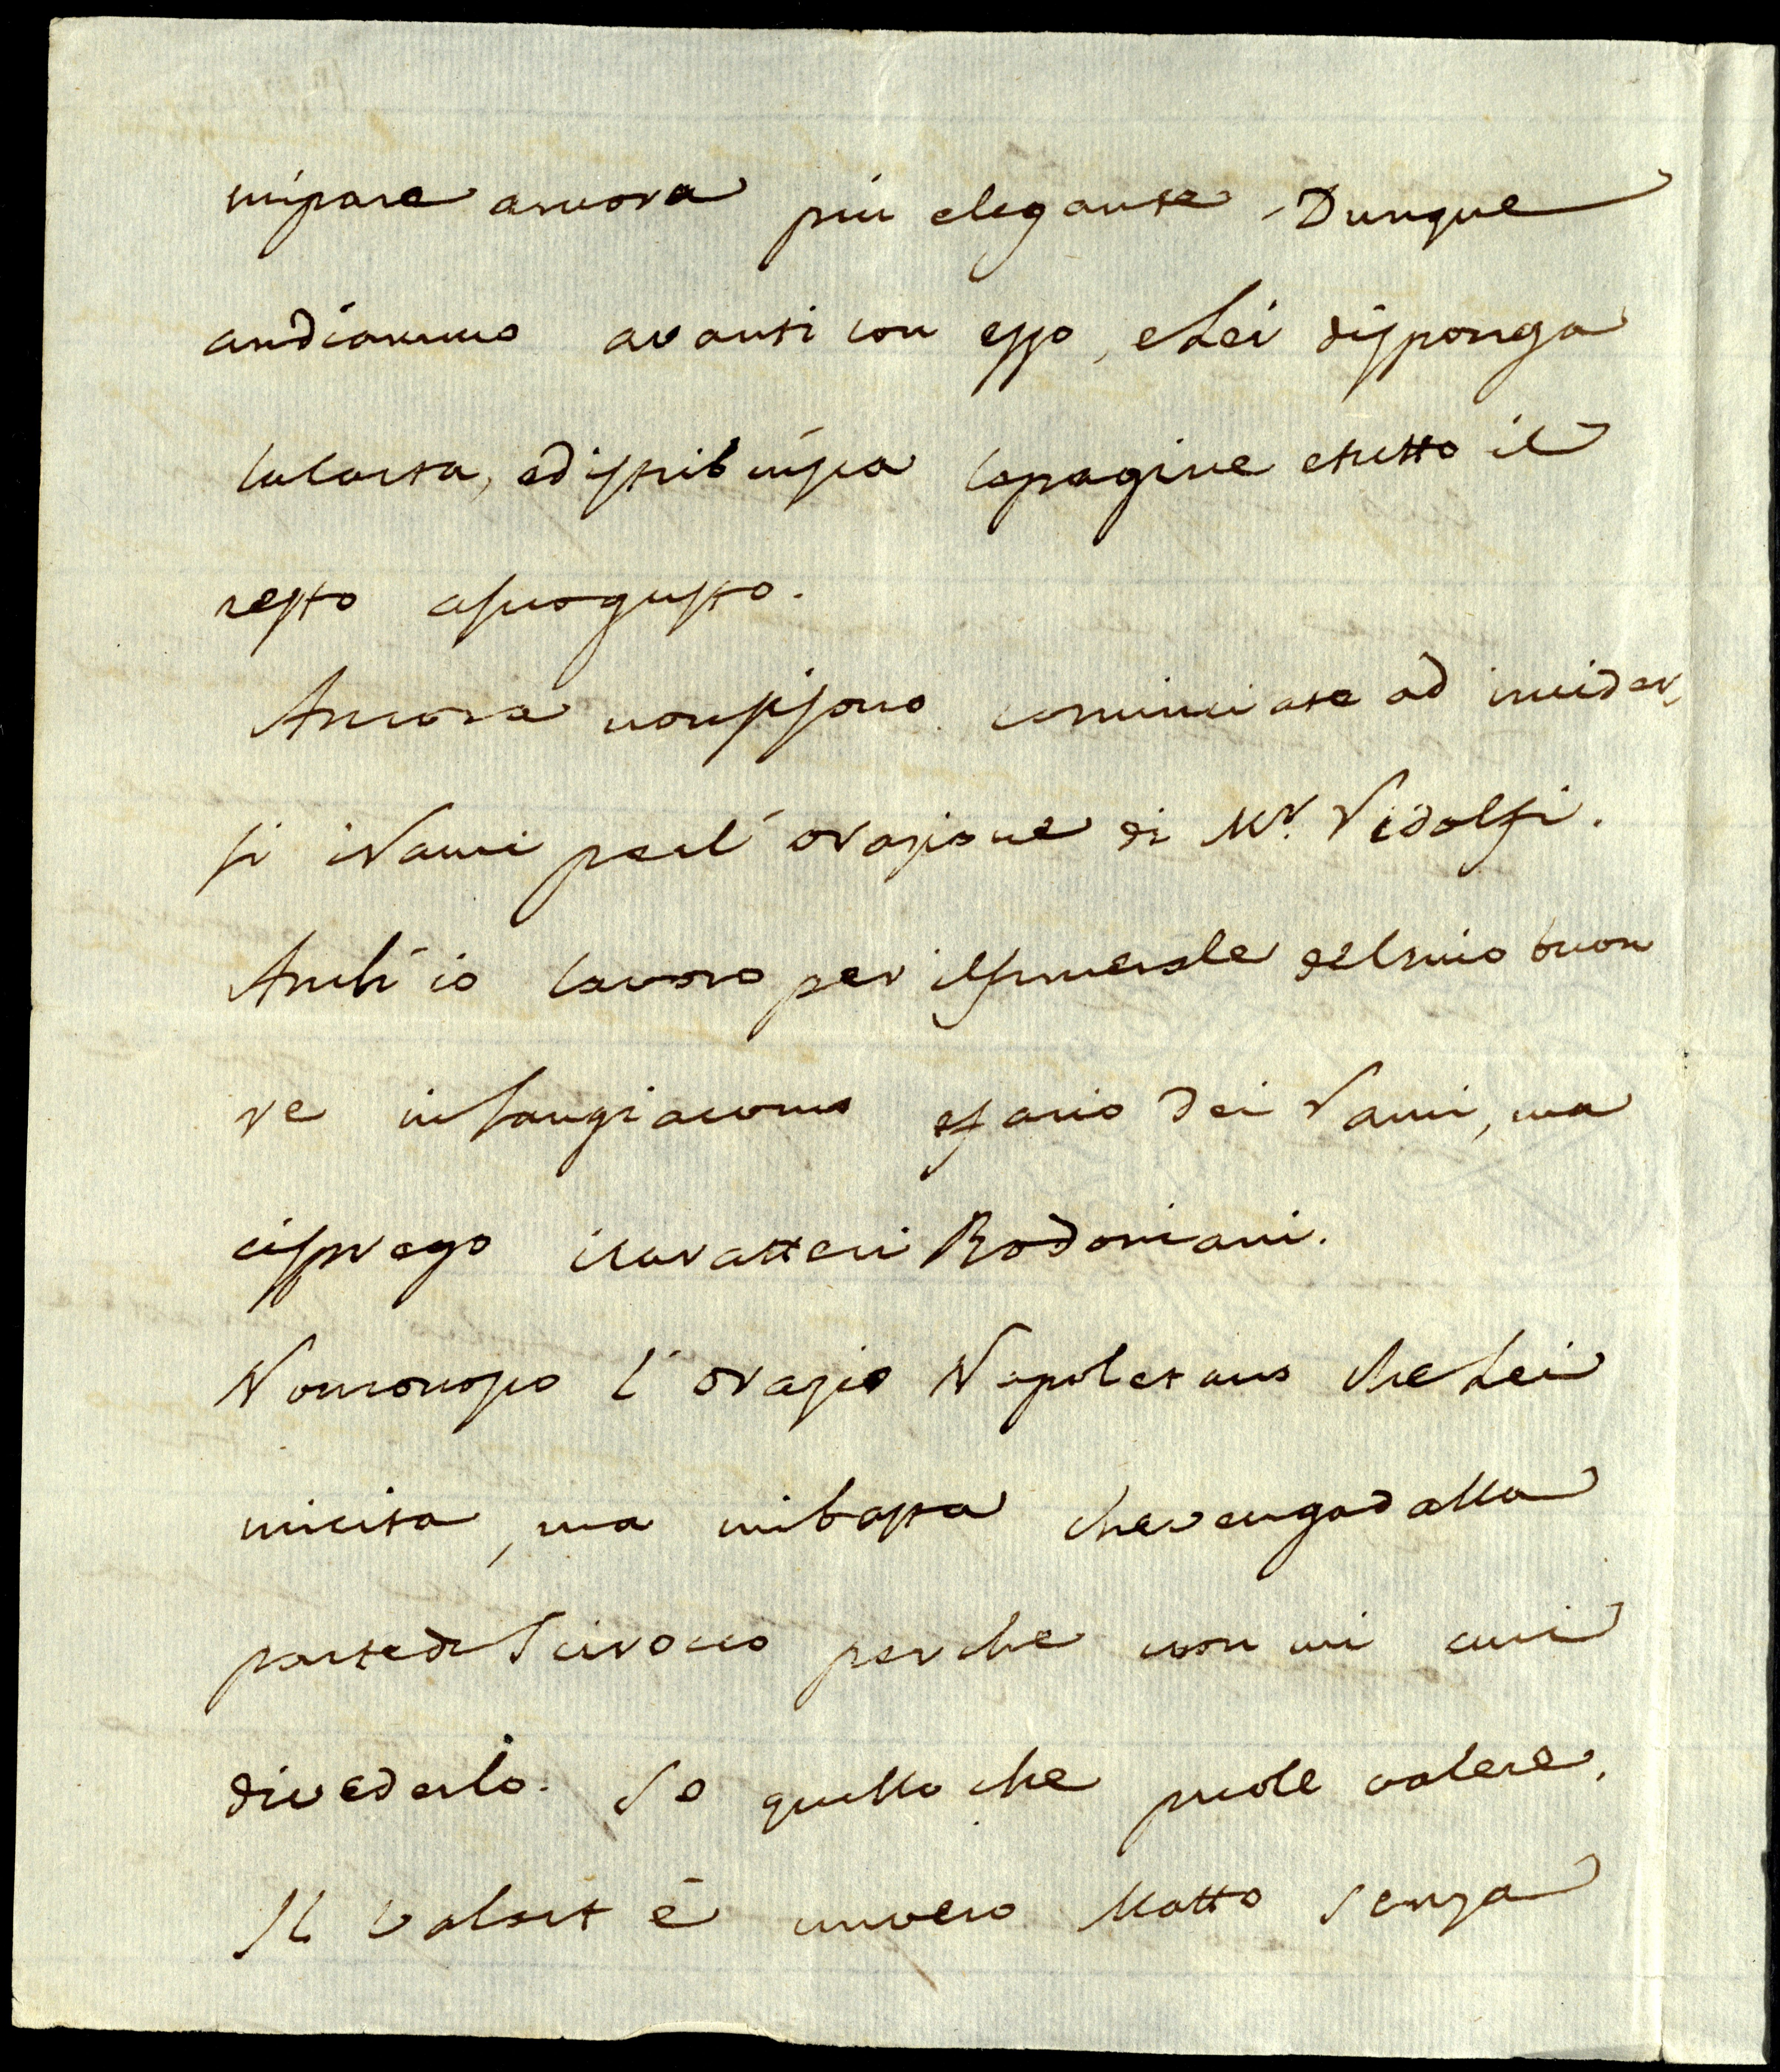 mipare ancora più elegante. Dunque
andiammo avanti con esso, e Lei disponga
lacarta, e distribuisca lepagine etutto il
resto asuogusto.
Ancora nonsisono cominciate ad incider,
si iRami perl'orazione di Mr. Ridolfi.
Anch'io lavoro per ilfunerale delmio buon
re insangiacomo efario dei Rami, ma
cisprego icaratteri Bodoniani.
Nonconosco l'Orazio Napoletano che Lei
micita, ma mibasta chevengadalla
partedi Scirocco perche non mi curi
divederlo. So quello che puole valere.
Il Valset è unvero Matto senza